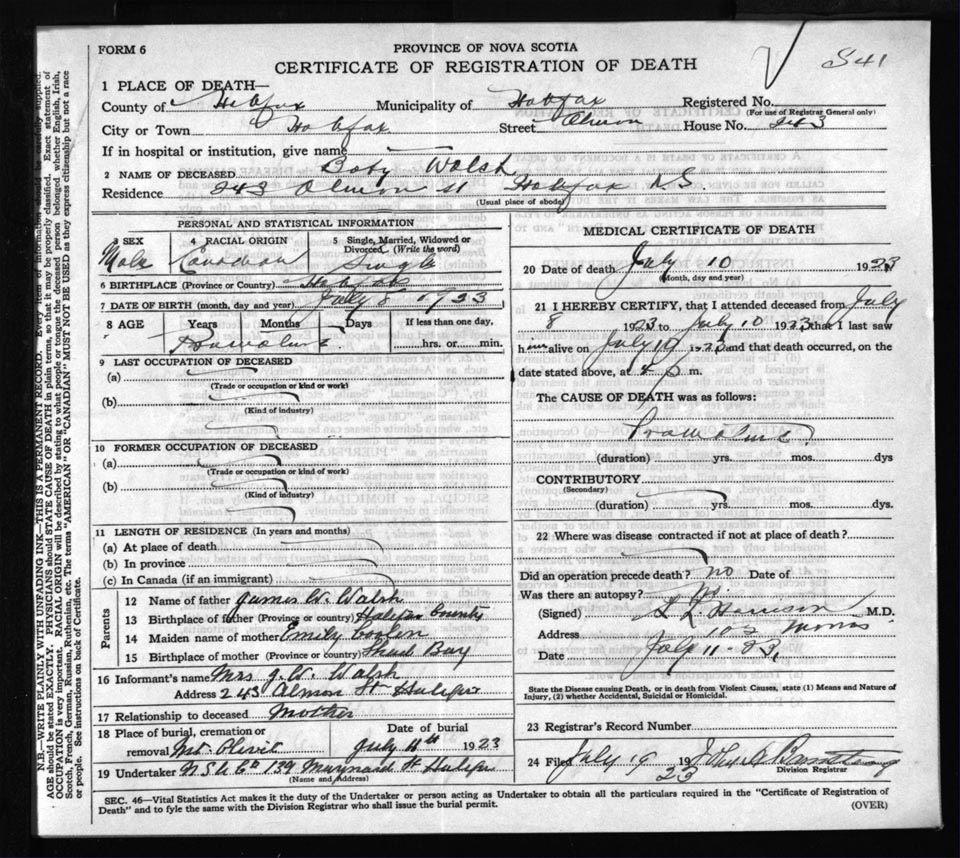 FORM 6
PROVINCE OF NOVA SCOTIA
CERTIFICATE OF REGISTRATION OF DEATH
341
1 PLACE OF DEATH—
County of Halifax Municipality of Halifax Registered No.
(For use of Registrar General only)
City or Town Halifax Street Almon House No. 243
If in hospital or institution, give name
2 NAME OF DECEASED Baby Walsh
Residence 243 Almon St Halifax N.S.
(Usual place of abode)
PERSONAL AND STATISTICAL INFORMATION
3 SEX 4 RACIAL ORIGIN 5 Single, Married, Widowed or Divorced (Write the word)
Male Canadian Single
6 BIRTHPLACE (Province or Country)
7 DATE OF BIRTH (month, day and year) July 8 1923
8 AGE Years Months Days If less than one day,
Premature hrs. or min.
9 LAST OCCUPATION OF DECEASED
(a)
(Trade or occupation or kind of work)
(b)
(Kind of industry)
10 FORMER OCCUPATION OF DECEASED
(a)
(Trade or occupation or kind of work)
(b)
(Kind of industry)
11 LENGTH OF RESIDENCE (In years and months)
(a) At place of death
(b) In province
(c) In Canada (if an immigrant)
Parents
12 Name of father James W. Walsh
13 Birthplace of father (Province or country) Halifax County
14 Maiden name of mother Emily
15 Birthplace of mother (Province or country) Shad Bay
16 Informant's name Mrs J. W. Walsh
Address 243 Almon St Halifax
17 Relationship to deceased Mother
18 Place of burial, cremation or removal Mt Olivet Date of burial July 11th 1923
19 Undertaker N S U Co 139 Maynard St Halifax
(Name and Address)
MEDICAL CERTIFICATE OF DEATH
20 Date of death July 10 1923
(Month, day and year)
21 I HEREBY CERTIFY, that I attended deceased from July
8 1923 to July 10 1923 that I last saw
h alive on July 10 1923 and that death occurred, on the
date stated above, at m.
The CAUSE OF DEATH was as follows:
Premature
(duration) yrs. mos. dys
CONTRIBUTORY
(Secondary)
(duration) yrs. mos. dys.
22 Where was disease contracted if not at place of death?
Did an operation precede death? no Date of
Was there an autopsy? no
(Signed) Harrison M.D.
Address Morris
Date July 11-23
State the Disease causing Death, or in death from Violent Causes, state (1) Means and Nature of
Injury, (2) whether Accidental, Suicidal or Homicidal.
23 Registrar's Record Number
24 Filed July 19 1923
Division Registrar
SEC. 46—Vital Statistics Act makes it the duty of the Undertaker or person acting as Undertaker to obtain all the particulars required in the "Certificate of Registration of
Death" and to fyle the same with the Division Registrar who shall issue the burial permit.
(OVER)
N.B.—WRITE PLAINLY WITH UNFADING INK—THIS IS A PERMANENT RECORD. Every item of information should be carefully supplied.
AGE should be stated EXACTLY. PHYSICIANS should STATE CAUSE OF DEATH in plain terms, so that it may be properly classified. Exact statement of
OCCUPATION is very important. RACIAL ORIGIN will be described by stating to what people or tongue the deceased person belonged, whether English, Irish,
Scotch, French, German, Russian, Ruthenian, etc. The terms "AMERICAN" OR "CANADIAN" MUST NOT BE USED as they express citizenship but not a race
or people. See instructions on back of Certificate.